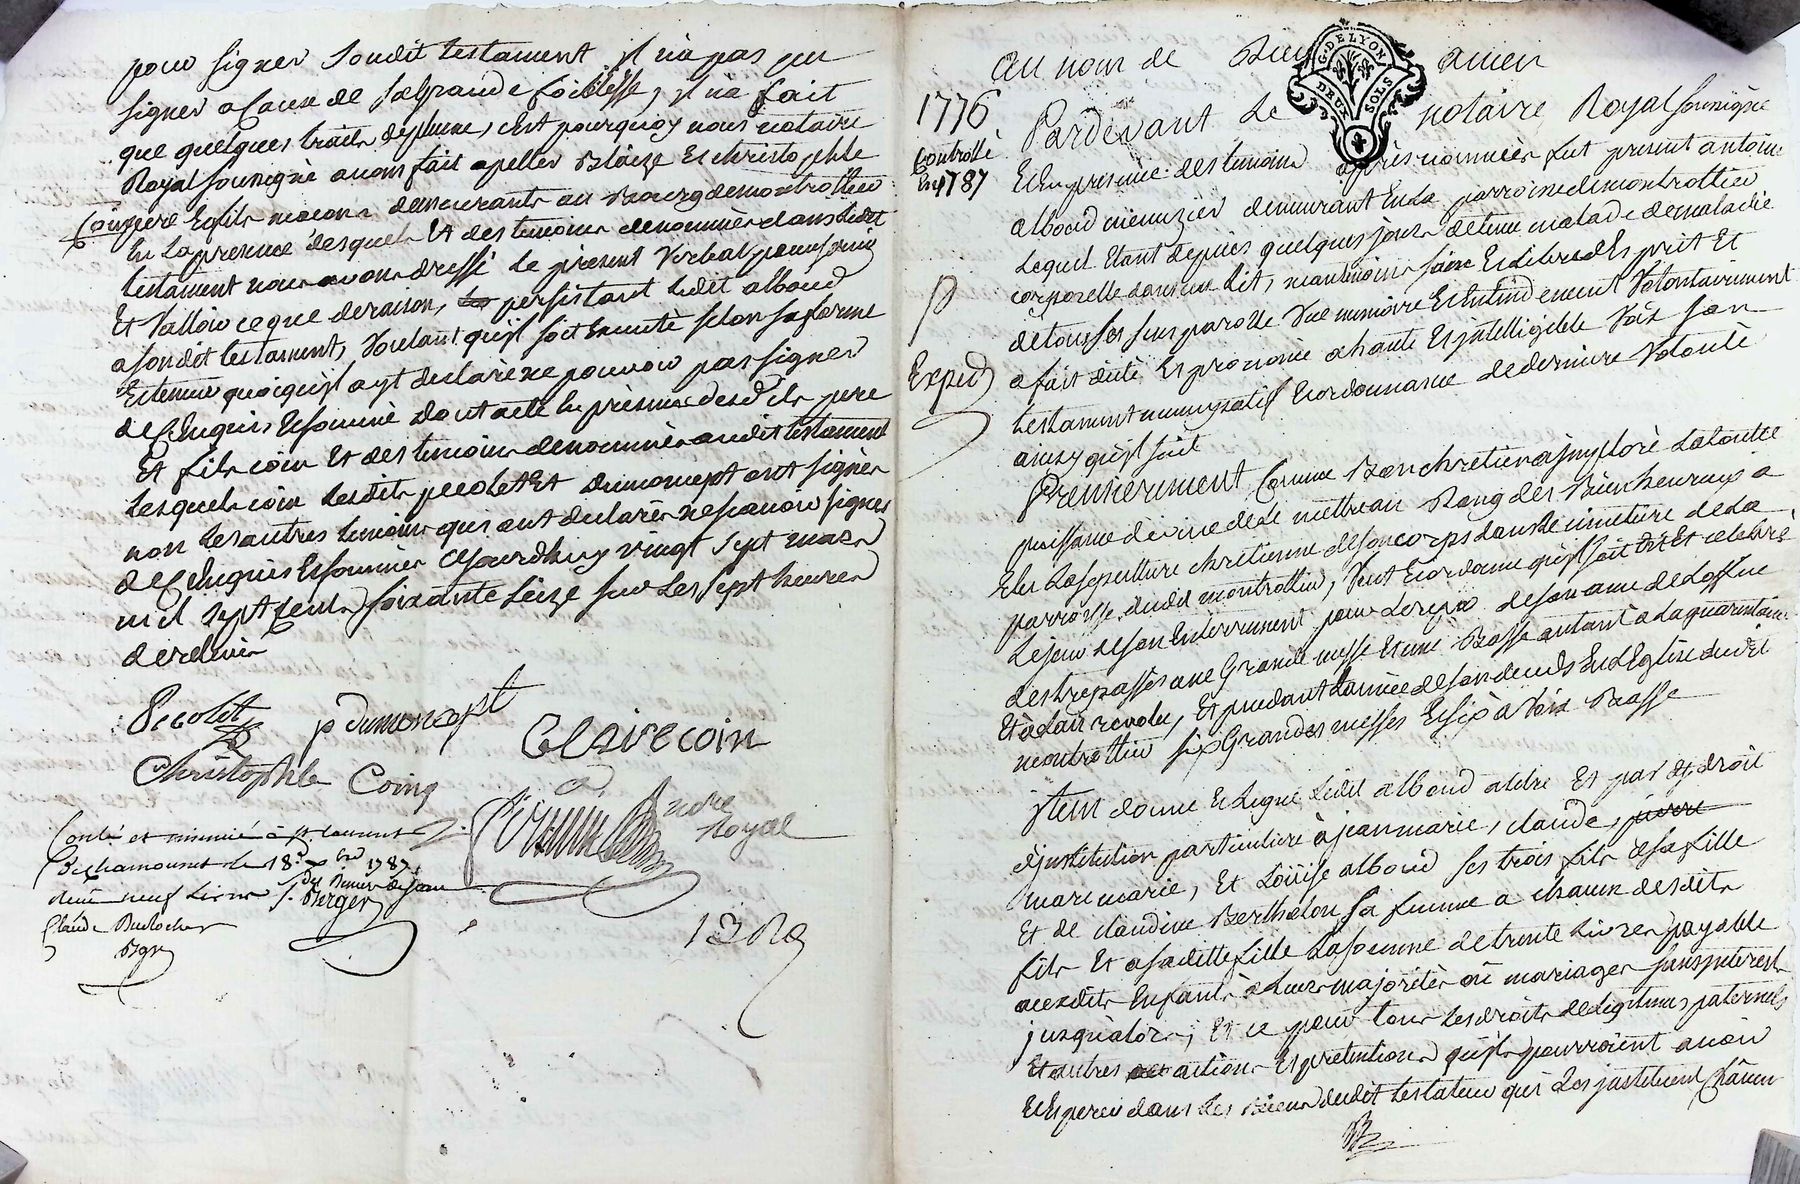 pour signer Sondit testament, il n'a pas peu
signer a Cause de Sa grande foiblesse, il n'a fait
que quelques traits de plume, c'est pourquoy nous notaire
Royal soussigné avons fait apeller Blaize Et christophle
Coing pere Et fils macons demeurants au Bourg de montrottier
En La presence desquels Et des temoins denommés dans ledit
testament nous avons dressé Le present Verbal pour servir
Et Valloir ce que de raison, persistant Ledit alboud
a son dit testament, Voulant qu'il soit Executé selon sa forme
Et teneur quoiqu'il ayt declaré ne pouvoir pas signer
de ce Enquis Et sommé Dont acte En presence desd. pere
Et fils coin Et des temoins denommés audit testament
Lesquels coin Lesdits pecolet Et Dumoncept ont signés
non Les autres temoins qui ont declarés ne scavoir signer
de ce Enquis Et sommés Cejourdhuy vingt sept mars
mil sept Cents soixante seize sur Les sept heures
de relevée
Pecolet p Dumoncept Blaize coin
Christophle Coing
nore Royal
Conlé et insinué à st Laurent
De chamousset le 18e xbre 1787
neuf Livres
Claude
Berger
13 Rd
G. DE LYON
DEUX SOLS
Au nom de Dieu amen
1776
Pardevant Le notaire Royal soussigné
Controllé
En 1787
Et En presence des temoins après nommés fut present antoine
alboud menuzier demeurant En La parroisse de montrottier
Lequel Etant depuis quelques jours detenu malade de maladie
corporelle dans un Lit, neantmoins sain Et Libre d'Esprit Et
de tous ses sens parolle Vue memoire Et Entendement Volontairement
Exped
a fait dicté Et prononcé a haute Et jntelligible Voix son
testament nuncupatif Et ordonnance de derniere Volonté
ainsy qu'il suit
Premierement Comme Bon chretien a jmploré La toutte
puissance divine de Le mettre au Rang des Bienheureux a
Elu La sepulture chretienne de son corps dans Le cimetiere de La
parroisse dudit montrottier, Veut Et ordonne qu'il soit dit Et celebré
Le jour de son Enterrement pour Le repos de son ame de L'office
des trepassés une Grande messe Et une Basse autant a La quarantaine
Et à L'an revolu, Et pendant L'année de son deceds En L'Eglise dudit
montrottier six Grandes messes Et six à Voix Basse
jtem donne Et Legue Ledit alboud aldre Et par dt droit
d'jnstitution particuliere à jean marie, claude, pierre
marc marie, Et Loüise alboud ses trois fils Et sa fille
Et de claudine Berthelon sa femme a chacun desdits
fils Et a sadite fille La somme de trente Livres payable
auxdits Enfants à Leurs majorités où mariages sans jnterest
jusqu'alors, Et ce pour tous Les droits de Legitimes paternels
Et autres actions Et pretentions qu'ils pourroient avoir
Et Esperer dans Les Biens dudit testateur qui Les jnstituent Chacun